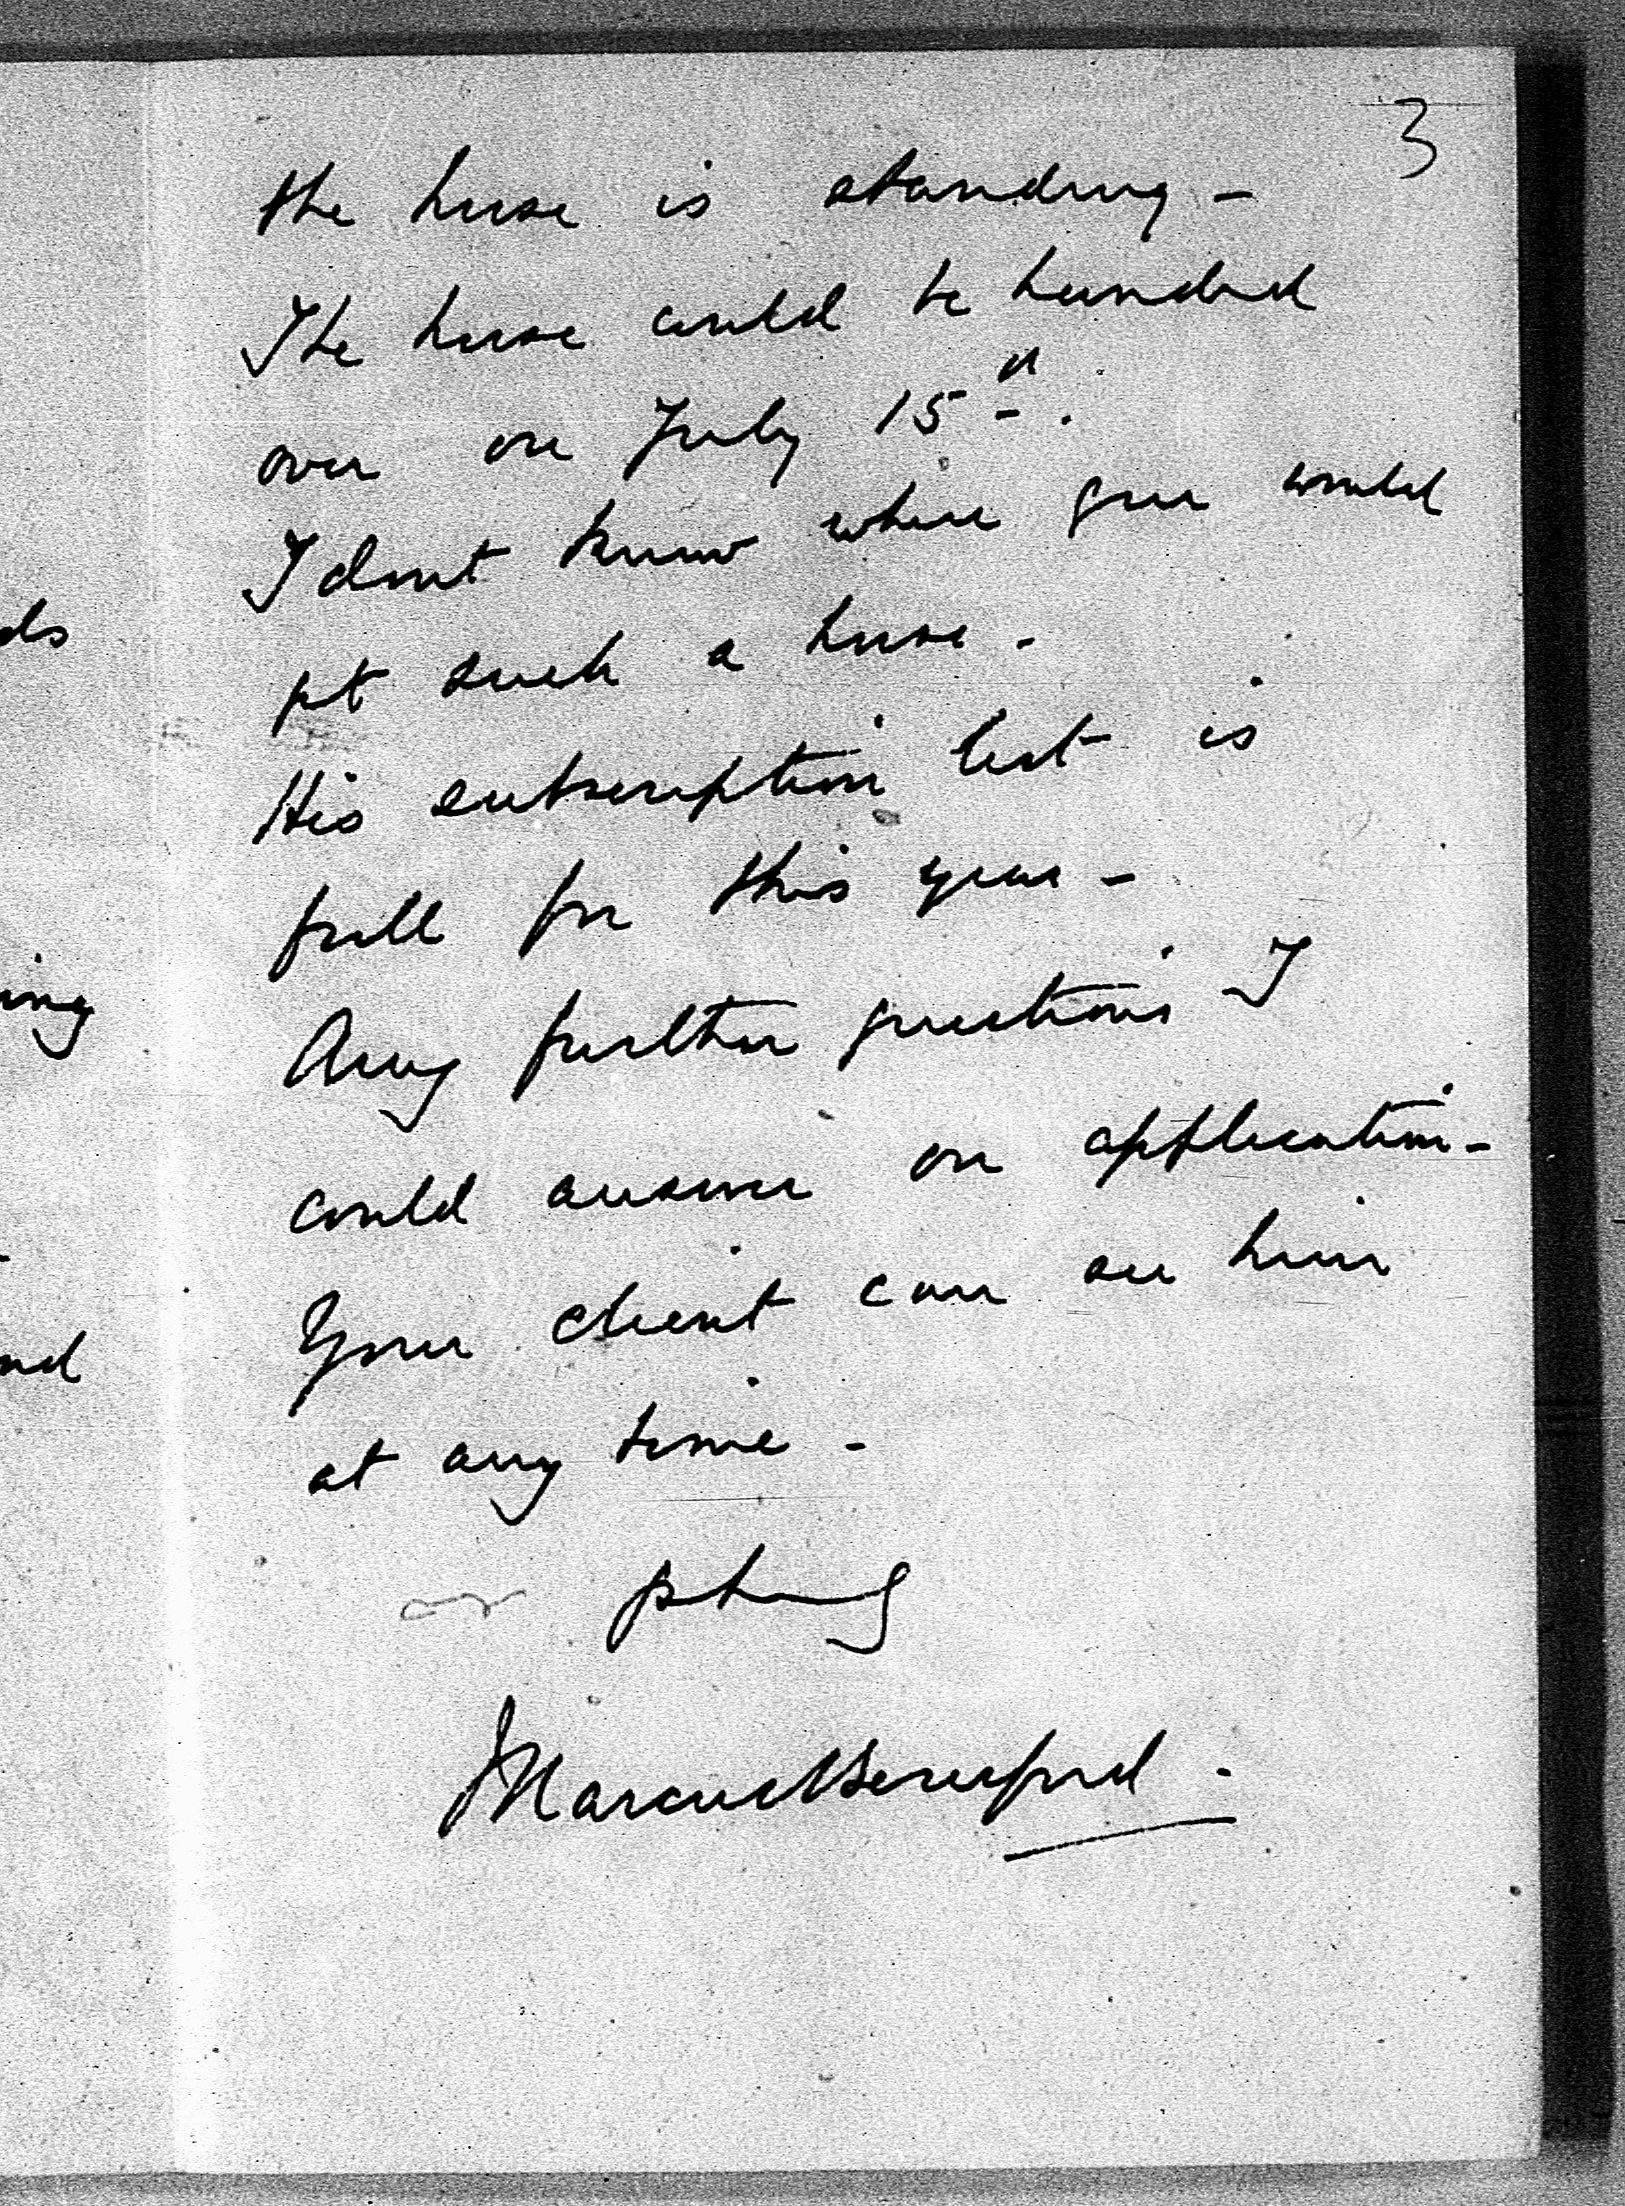 3
the horse is standing -
The horse could be handed
over on July 15th.
I dont know where you would
get such a horse -
His subscription list is
full for this year -
Any further questions I
could answer on application -
Your client can see him
at any time -
Marcus Beresford -
ds
ing
nd